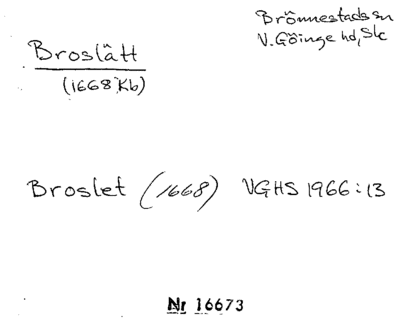 Brönnestads sn
V. Göinge hd, Sk
Broslätt
(1668 Kb)
Broslet (1668) VGHS 1966:13
Nr 16673